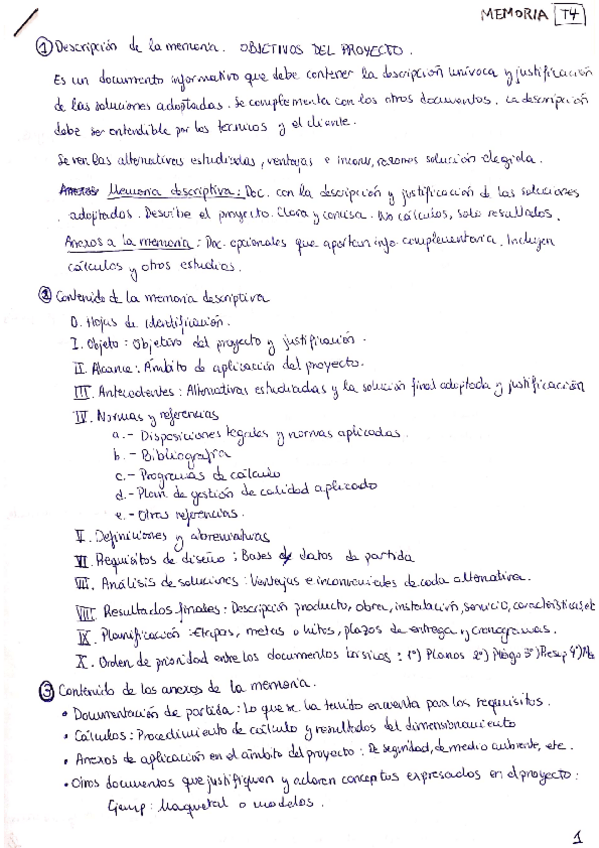 MEMORIA T4
① Descripción de la memoria. OBJETIVOS DEL PROYECTO.
Es un documento informativo que debe contener la descripción unívoca y justificación
de las soluciones adoptadas. Se complementa con los otros documentos. La descripción
debe ser entendible por los técnicos y el cliente.
Se ven las alternativas estudiadas, ventajas e inconv, razones solución elegida.
Memoria descriptiva: Doc. con la descripción y justificación de las soluciones
adoptadas. Describe el proyecto. Clara y concisa. No cálculos, solo resultados.
Anexos a la memoria: Doc. opcionales que aportan info complementaria. Incluyen
cálculos y otros estudios.
② Contenido de la memoria descriptiva
0. Hojas de identificación.
I. Objeto: Objetivo del proyecto y justificación.
II. Alcance: Ámbito de aplicación del proyecto.
III. Antecedentes: Alternativas estudiadas y la solución final adoptada y justificación
IV. Normas y referencias
a.- Disposiciones legales y normas aplicadas.
b.- Bibliografía
c.- Programas de cálculo
d.- Plan de gestión de calidad aplicado
e.- Otras referencias.
V. Definiciones y abreviaturas
VI. Requisitos de diseño: Bases de datos de partida
VII. Análisis de soluciones: Ventajas e inconvenientes de cada alternativa.
VIII. Resultados finales: Descripción producto, obra, instalación, servicio, características, etc
IX. Planificación: Etapas, metas o hitos, plazos de entrega y cronogramas.
X. Orden de prioridad entre los documentos básicos: 1º) Planos 2º) Pliego 3º) Presup 4º) Me
③ Contenido de los anexos de la memoria.
• Documentación de partida: Lo que se ha tenido en cuenta para los requisitos.
• Cálculos: Procedimiento de cálculo y resultados del dimensionamiento
• Anexos de aplicación en el ámbito del proyecto: De seguridad, de medio ambiente, etc.
• Otros documentos que justifiquen y aclaren conceptos expresados en el proyecto:
Ejemp: Maquetas o modelos.
1